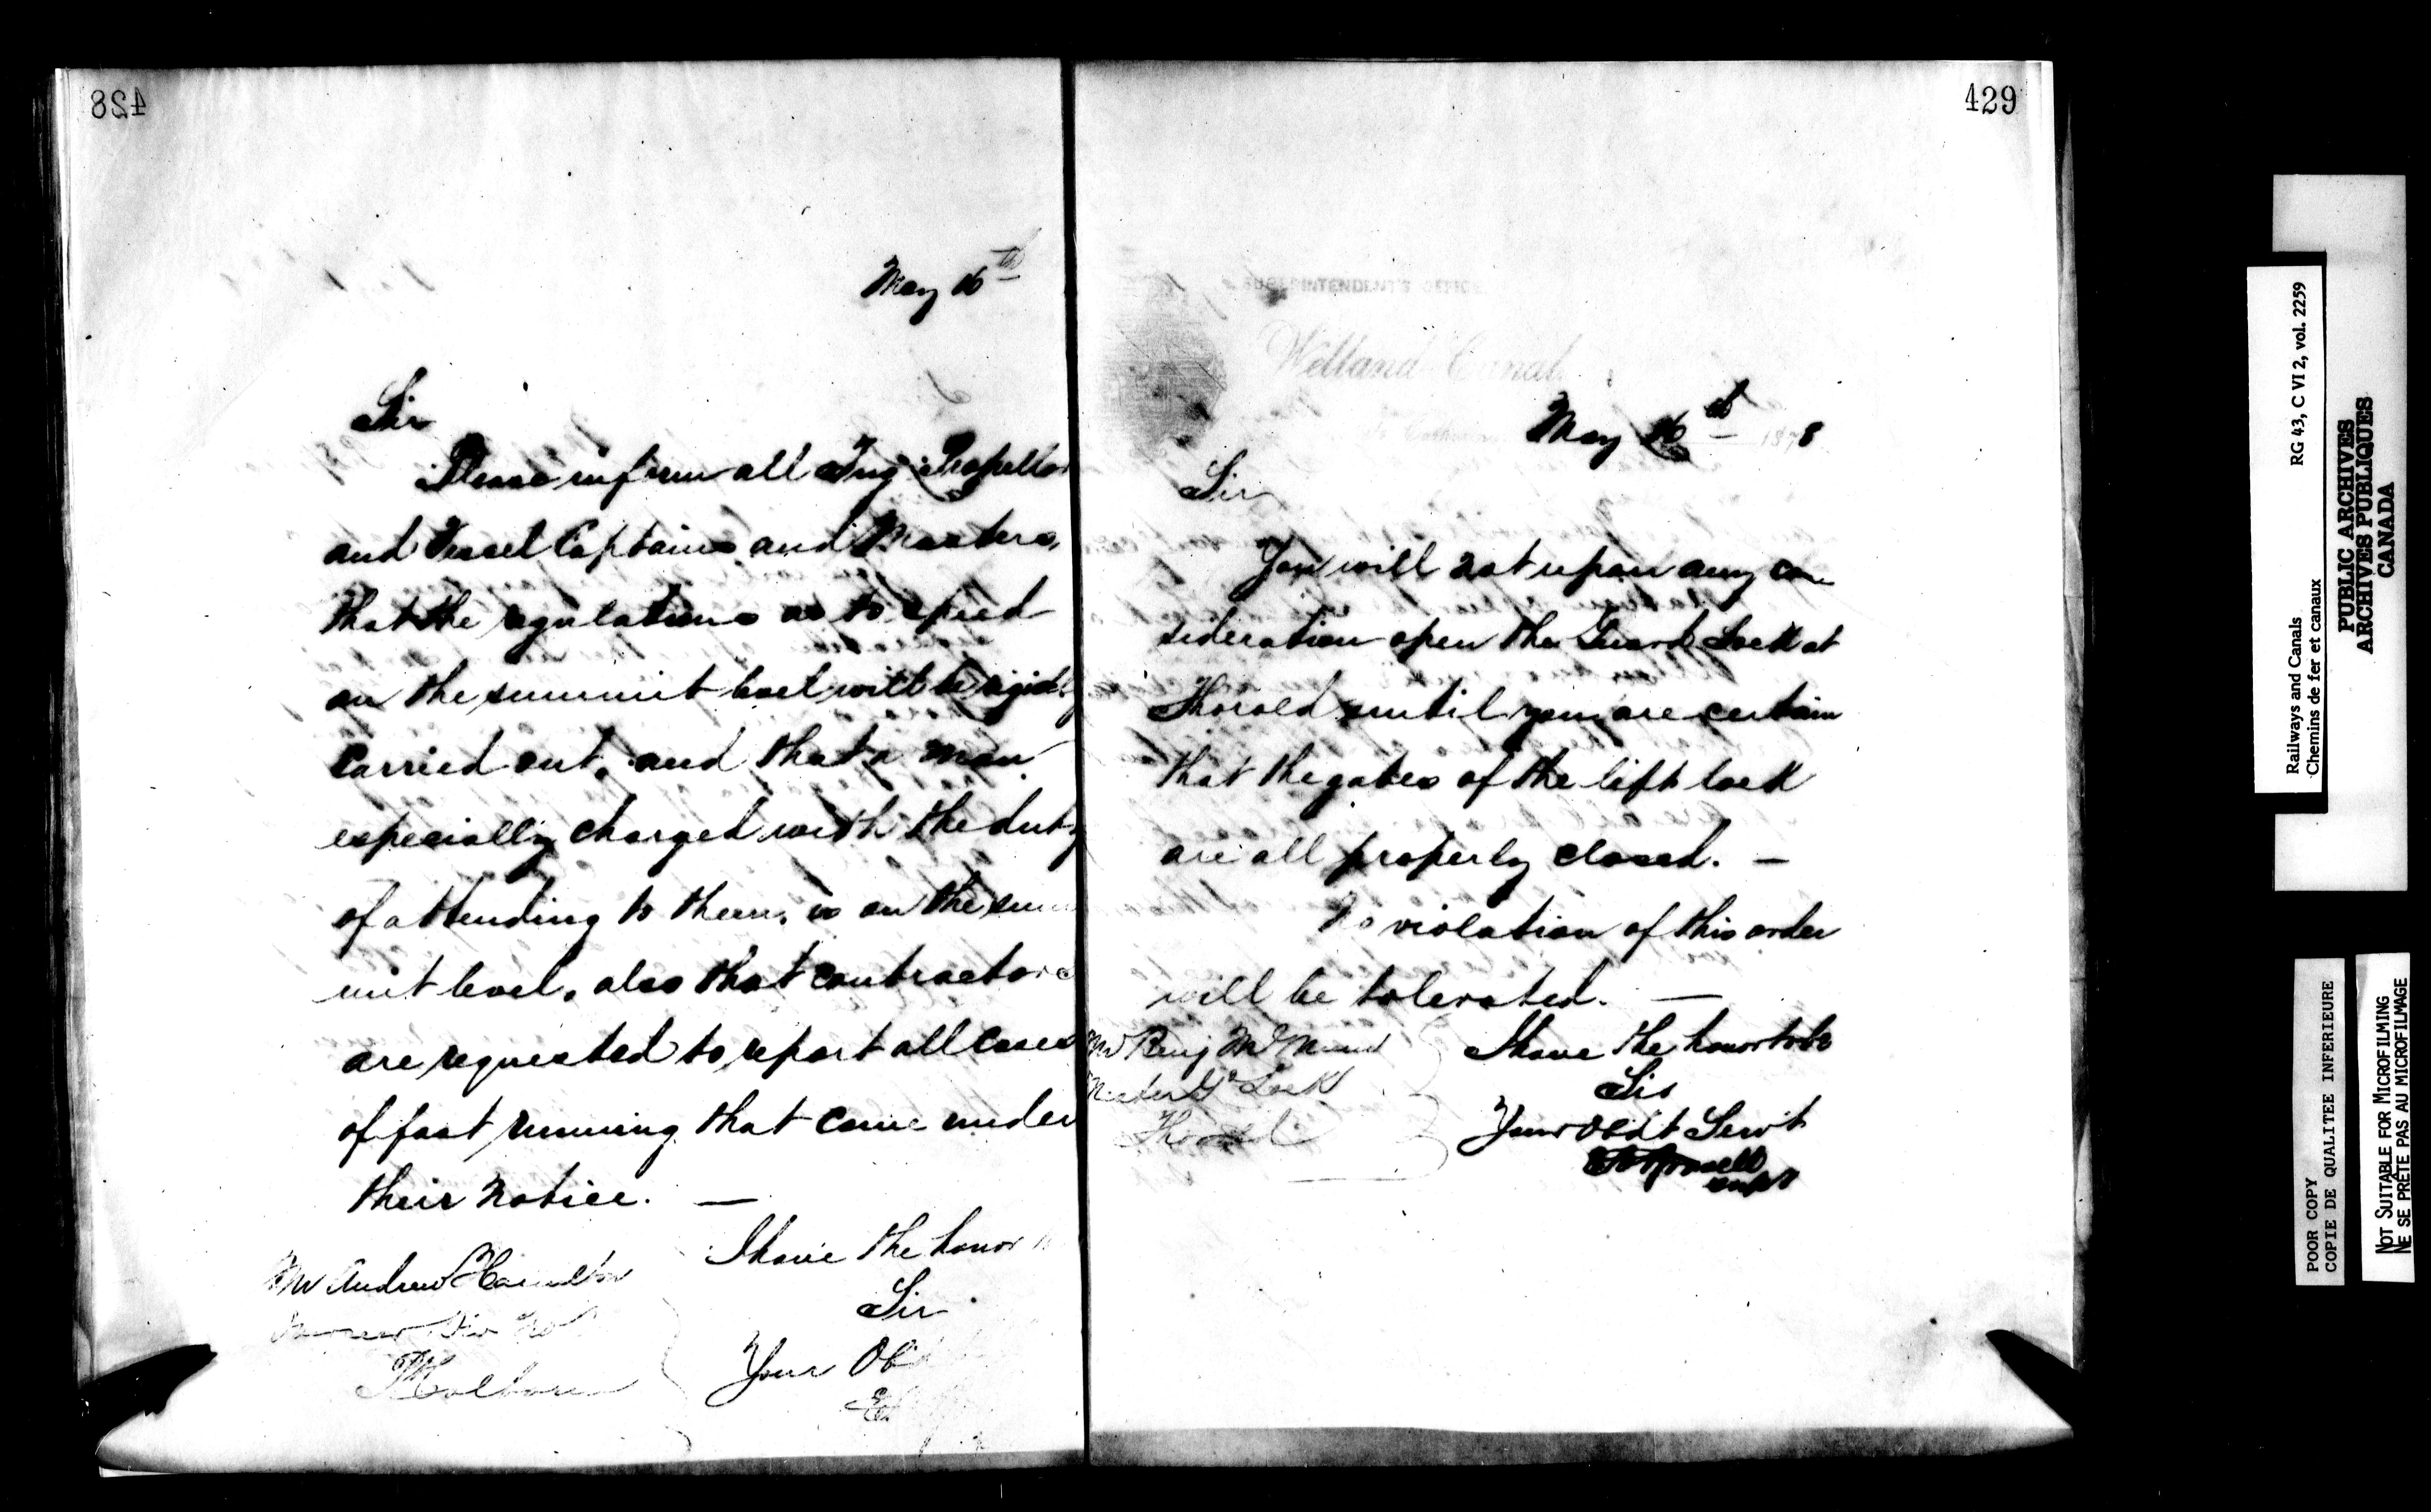 428
May 16th
Sir
Please inform all Tug Propellor
and Vessel Captains and Masters,
that the regulations as to speed
on the summit level will be rigidly
carried out, and that a man
especially charged with the duty
of attending to them, is on the sum
mit level, also that contractors
are requested to report all cases
of fast running that come under
their notice. —
I have the honor
Sir
Your Ob
Mr Andrew Hamilton
Div No
Pt Colborne
429
SUPERINTENDENT'S OFFICE
Welland Canal
St Catharines
May 16th 1878
Sir
You will not upon any con
sideration open the Guard Lock at
Thorold until you are certain
that the gates of the lift lock
are all properly closed. —
No violation of this order
will be tolerated. —
I have the honor to be
Sir
Your Obdt Servt
Supt
Mr Benj Mc
Lock
Thorold
Railways and Canals RG 43, C VI 2, vol. 2259
Chemins de fer et canaux
PUBLIC ARCHIVES
ARCHIVES PUBLIQUES
CANADA
POOR COPY
COPIE DE QUALITEE INFERIEURE
NOT SUITABLE FOR MICROFILMING
NE SE PRÊTE PAS AU MICROFILMAGE